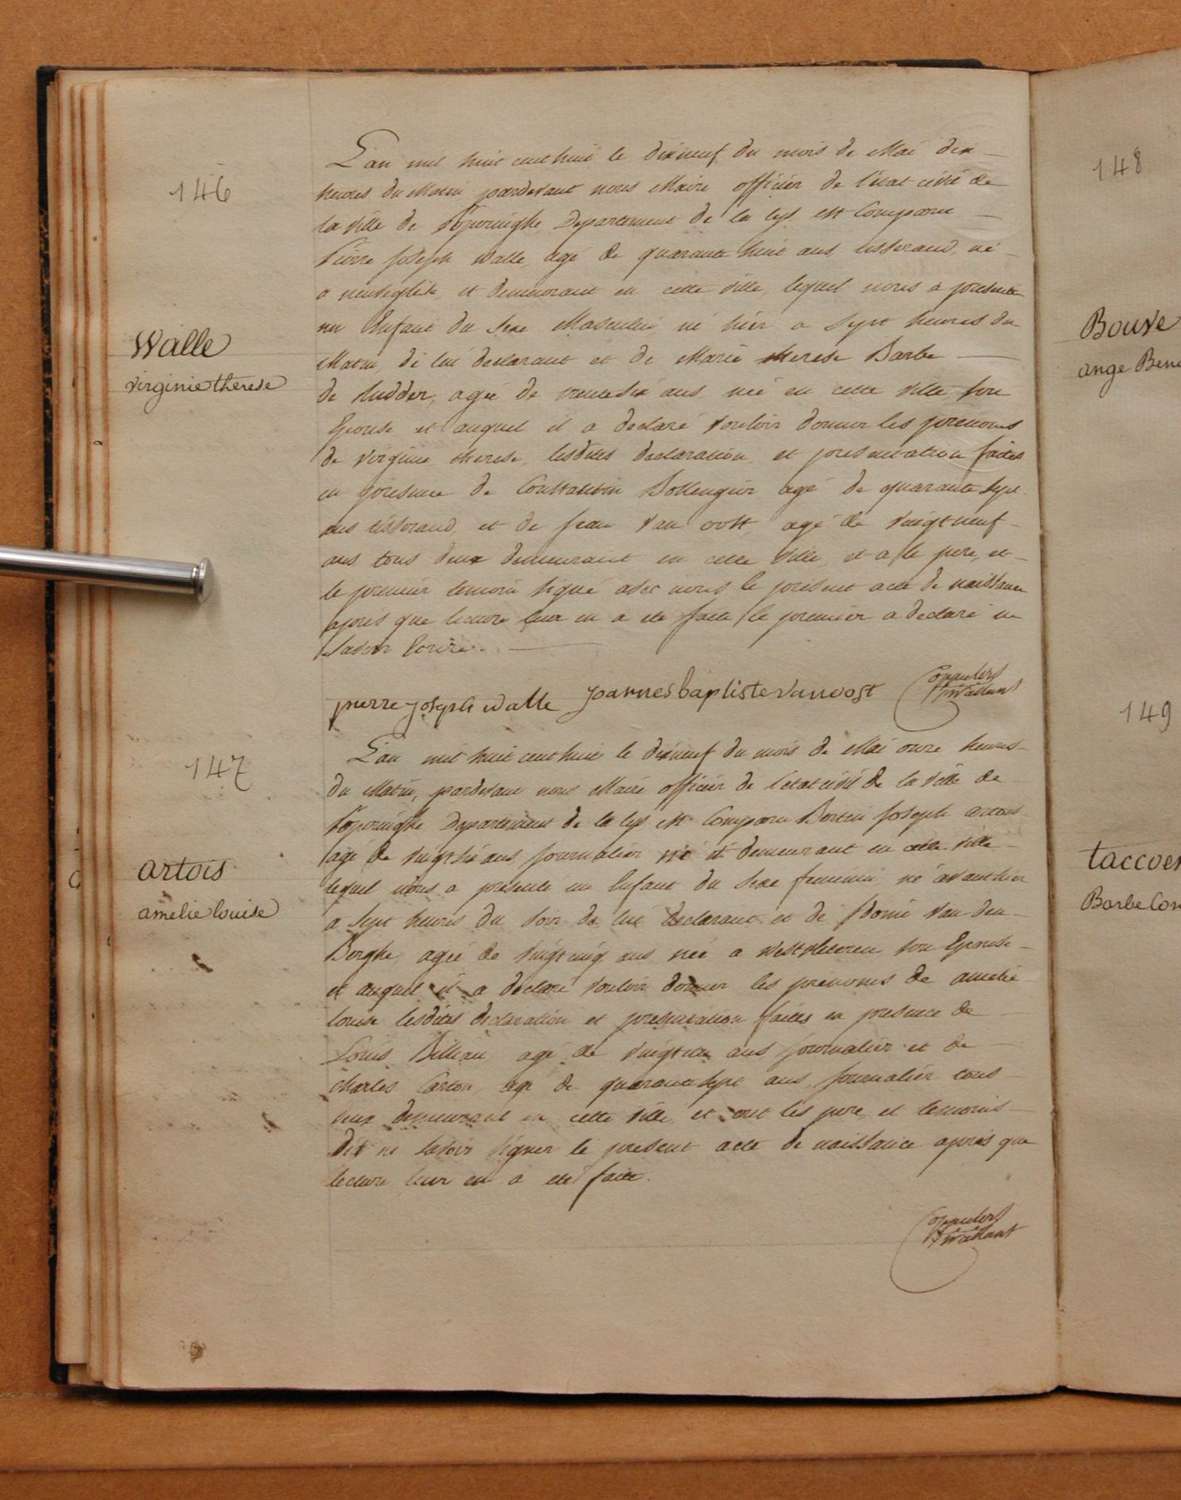 146
Walle
virginie therese
L'an mil huit cent huit le dixneuf du mois de Mai dix
heures du Matin pardevant nous Maire officier de l'état civil de
la ville de Poperinghe Departement de la Lys est Comparu
Pierre Joseph Walle agé de quarante huit ans tisserand, né
a neufeglise, et demeurant en cette ville, lequel nous a presenté
un Enfant du Sexe Masculin né hier a Sept heures du
Matin, de lui declarant et de Marie therese Barbe
de Rudder, agée de trentesix ans née en cette ville son
Epouse et auquel il a declaré vouloir donner les prenoms
de virginie therese, lesdites declaration et presentation faites
en presence de Constantin Bollengier agé de quarante sept
ans tisserand, et de jean van oost agé de vingt neuf
ans tous deux demeurant en cette ville, et a le pere, et
le premier temoin signé avec nous le présent acte de naissance
après que lecture leur en a été faite le premier a declaré ne
Savoir Ecrire.
pierre joseph walle joannes baptiste vanoost
147
artois
amelie louise
L'an mil huit cent huit le dixneuf du mois de Mai onze heures
du Matin, pardevant nous Maire officier de l'état civil de la ville de
Poperinghe Departement de la Lys est Comparu Joseph artois
agé de vingt six ans journalier né et demeurant en cette ville
lequel nous a presenté un Enfant du Sexe feminin né avanthier
a Sept heures du Soir de lui declarant et de van den
Berghe, agée de vingtcinq ans née a Westvleteren son Epouse
et auquel il a declaré vouloir donner les prenoms de amelie
louise lesdites declaration et presentation faites en presence de
Louis Billiau agé de ans journalier et de
charles Carton agé de quarante sept ans journalier tous
deux demeurant en cette ville et ont les pere et temoins
dit ne Savoir Signer le present acte de naissance après que
lecture leur en a été faite.
148
Bouve
ange Bene
149
taccoen
Barbe Con